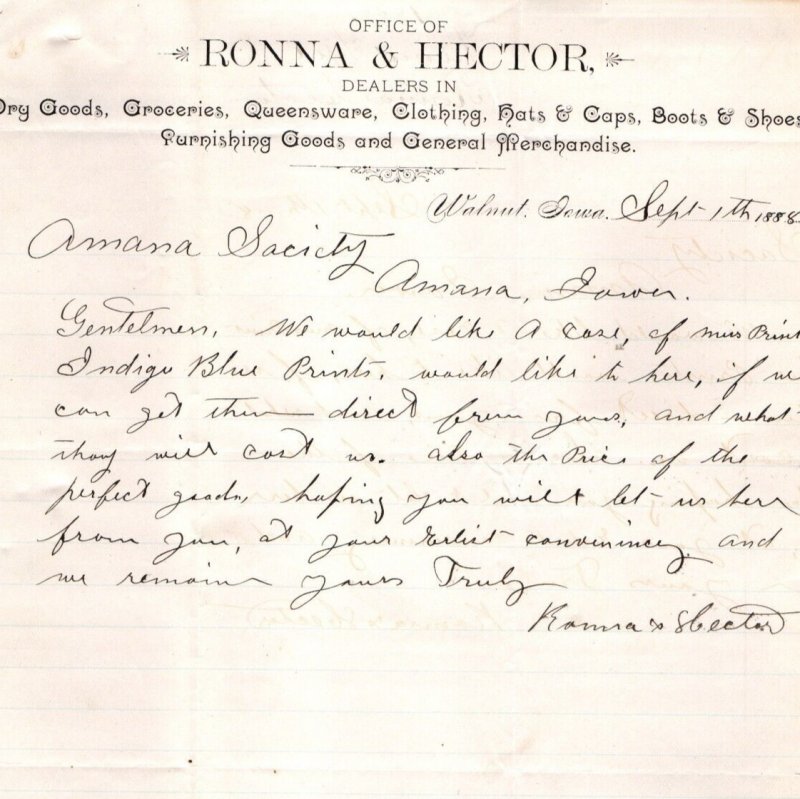 OFFICE OF
RONNA & HECTOR,
DEALERS IN
Dry Goods, Groceries, Queensware, Clothing, Hats & Caps, Boots & Shoes
Furnishing Goods and General Merchandise.
Walnut, Iowa. Sept 1th 1888
Amana Saciety
Amana, Iower.
Gentelmen, We would like A Case, of miss Print
Indigo Blue Prints, would like to here, if we
can get them direct from yous, and what
thay will cost us. also the Price of the
perfect goods, hoping you will let us herr
from you, at your Erlist convinincy and
we remain yours Truly
Ronna & Hector